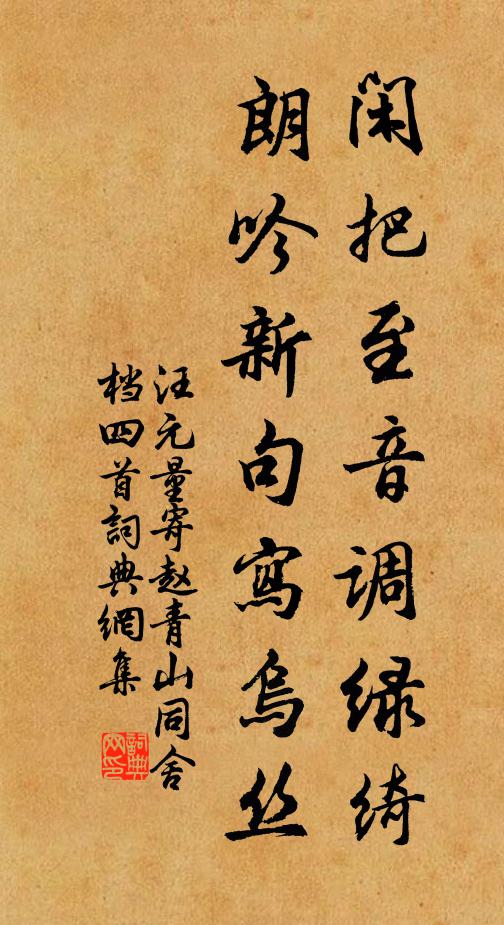 闲把至音调绿绮
朗吟新句寫烏丝
汪元量寄赵青山同舍
档四首詞典網集
詞典
网印